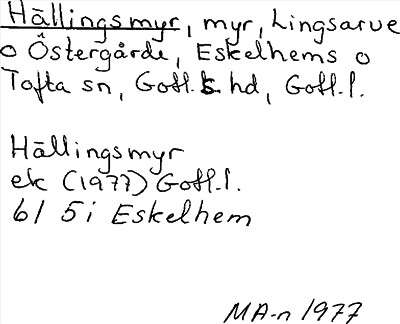 Hällingsmyr, myr, Lingsarve
o Östergårde, Eskelhems o
Tofta sn, Gotl. s. hd, Gotl. l.
Hällingsmyr
ek (1977) Gotl. l.
6I 5i Eskelhem
MA-n 1977